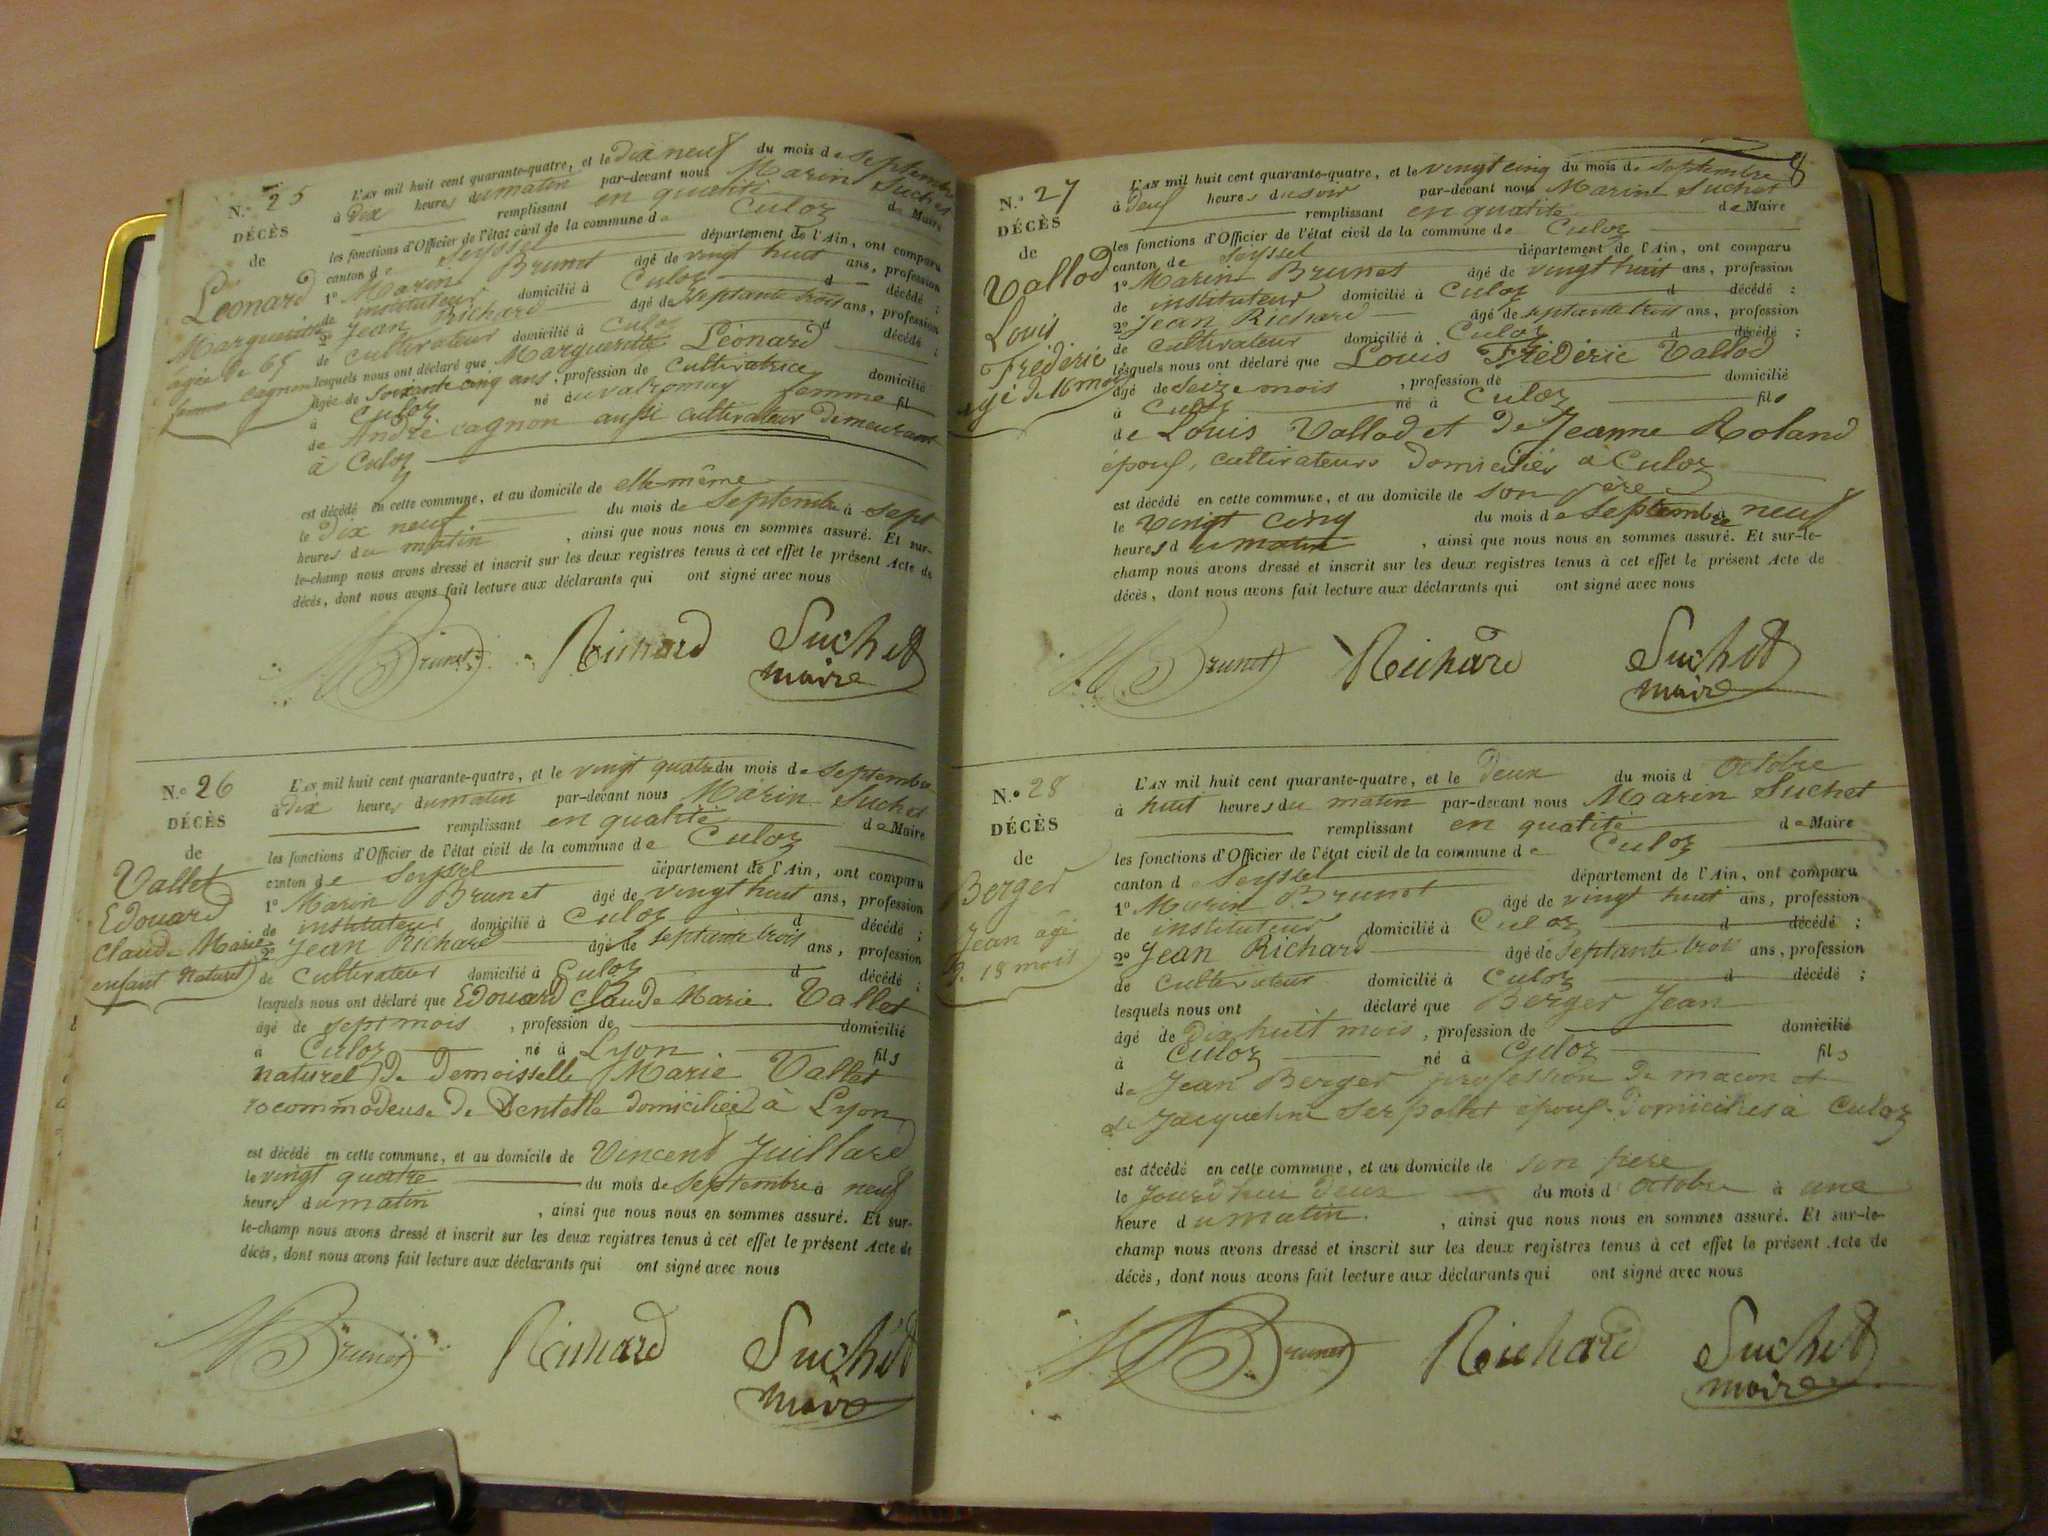 N.o 25
DÉCÈS
de
Léonard
Marguerite
agée de 65
femme cagnon
L'AN mil huit cent quarante-quatre, et le dix neuf du mois de septembre
à dix heures du matin par-devant nous Marin Suchet
remplissant en qualité de Maire
les fonctions d'Officier de l'état civil de la commune de Culoz
canton de Seyssel département de l'Ain, ont comparu
1o Marin Brunet âgé de vingt huit ans, profession
de instituteur domicilié à Culoz d décédé ;
2o Jean Richard âgé de septante trois ans, profession
de cultivateur domicilié à Culoz d décédé ;
lesquels nous ont déclaré que Marguerite Léonard
âgée de soixante cinq ans, profession de cultivatrice domicilié
à Culoz né à valromay femme fil
de André cagnon aussi cultivateur demeurant
à Culoz
est décédé en cette commune, et au domicile de elle-même
le dix neuf du mois de septembre à sept
heures du matin, ainsi que nous nous en sommes assuré. Et sur-
le-champ nous avons dressé et inscrit sur les deux registres tenus à cet effet le présent Acte de
décès, dont nous avons fait lecture aux déclarants qui ont signé avec nous
Brunet Richard Suchet
maire
N.o 26
DÉCÈS
de
Vallet
Edouard
Claude Marie
enfant naturel
L'AN mil huit cent quarante-quatre, et le vingt quatre du mois de septembre
à dix heures du matin par-devant nous Marin Suchet
remplissant en qualité de Maire
les fonctions d'Officier de l'état civil de la commune de Culoz
canton de Seyssel département de l'Ain, ont comparu
1o Marin Brunet âgé de vingt huit ans, profession
de instituteur domicilié à Culoz d décédé ;
2o Jean Richard âgé de septante trois ans, profession
de cultivateur domicilié à Culoz d décédé ;
lesquels nous ont déclaré que Edouard Claude Marie Vallet
âgé de sept mois, profession de domicilié
à Culoz né à Lyon fils
naturel de demoisselle Marie Vallet
racommodeuse de Dentelle domiciliée à Lyon
est décédé en cette commune, et au domicile de Vincent Juillard
le vingt quatre du mois de septembre à neuf
heures du matin, ainsi que nous nous en sommes assuré. Et sur-
le-champ nous avons dressé et inscrit sur les deux registres tenus à cet effet le présent Acte de
décès, dont nous avons fait lecture aux déclarants qui ont signé avec nous
Brunet Richard Suchet
maire
8
N.o 27
DÉCÈS
de
Vallod
Louis
Frédéric
agé de 16 mois
L'AN mil huit cent quarante-quatre, et le vingt cinq du mois de septembre
à deux heures du soir par-devant nous Marin Suchet
remplissant en qualité de Maire
les fonctions d'Officier de l'état civil de la commune de Culoz
canton de Seyssel département de l'Ain, ont comparu
1o Marin Brunet âgé de vingt huit ans, profession
de instituteur domicilié à Culoz d décédé ;
2o Jean Richard âgé de septante trois ans, profession
de cultivateur domicilié à Culoz d décédé ;
lesquels nous ont déclaré que Louis Frédéric Vallod
âgé de seize mois, profession de domicilié
à Culoz né à Culoz fils
de Louis Vallod et de Jeanne Roland
épous, cultivateurs domiciliés à Culoz
est décédé en cette commune, et au domicile de son père
le vingt cinq du mois de septembre à neuf
heures du matin, ainsi que nous nous en sommes assuré. Et sur-le-
champ nous avons dressé et inscrit sur les deux registres tenus à cet effet le présent Acte de
décès, dont nous avons fait lecture aux déclarants qui ont signé avec nous
Brunet Richard Suchet
maire
N.o 28
DÉCÈS
de
Berger
Jean agé
de 18 mois
L'AN mil huit cent quarante-quatre, et le deux du mois d octobre
à huit heures du matin par-devant nous Marin Suchet
remplissant en qualité de Maire
les fonctions d'Officier de l'état civil de la commune de Culoz
canton de Seyssel département de l'Ain, ont comparu
1o Marin Brunet âgé de vingt huit ans, profession
de instituteur domicilié à Culoz d décédé ;
2o Jean Richard âgé de septante trois ans, profession
de cultivateur domicilié à Culoz d décédé ;
lesquels nous ont déclaré que Berger Jean
âgé de dix huit mois, profession de domicilié
à Culoz né à Culoz fils
de Jean Berger profession de maçon et
de Jacqueline Serpollet épous domiciliés à Culoz
est décédé en cette commune, et au domicile de son père
le jourd'hui deux du mois d octobre à une
heure du matin, ainsi que nous nous en sommes assuré. Et sur-le-
champ nous avons dressé et inscrit sur les deux registres tenus à cet effet le présent Acte de
décès, dont nous avons fait lecture aux déclarants qui ont signé avec nous
Brunet Richard Suchet
maire